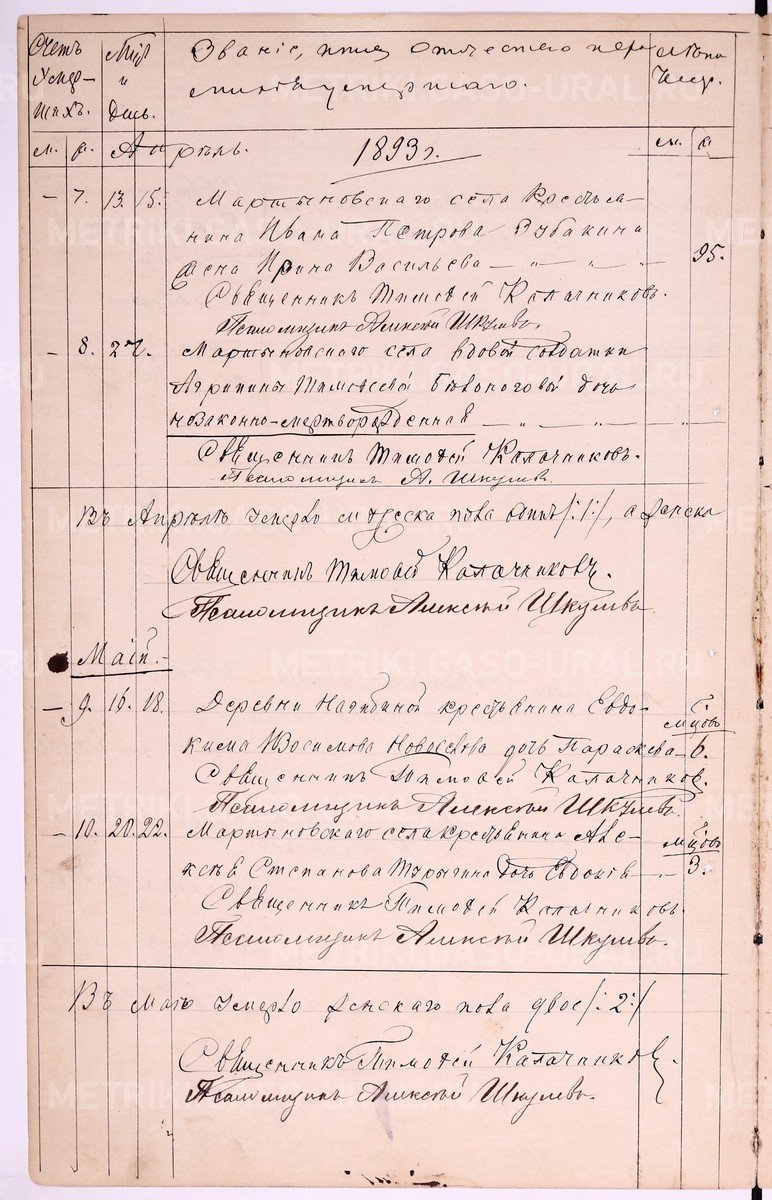 Счетъ умер-шихъ.
Мѣс. и день.
Званіе, имя, отчество и фа-
милія умершаго.
Лѣта умер.
м. ж. Апрѣль. 1893 г. м. ж.
— 7. 13. 15. Мартыновскаго села крестья-
нина Ивана Петрова Зубакина
жена Ирина Васильева — „ — „ — „ 95.
Священникъ Тимофей Калачниковъ.
Псаломщикъ Алексѣй Шкулевъ.
— 8. 27. Мартыновскаго села вдовой солдатки
Агрипины Тимофеевой Бѣлоноговой дочь
незаконно-мертворожденная — „ — „ — „
Священникъ Тимофей Калачниковъ.
Псаломщикъ А. Шкулевъ
Въ Апрѣлѣ умерло мужеска пола одинъ /:1:/, а женска
Священникъ Тимофей Калачниковъ.
Псаломщикъ Алексѣй Шкулевъ.
Май.
— 9. 16. 18. Деревни крестьянина Евдо-
кима Новоселова дочь Параскева — мѣсяцовъ 6.
Священникъ Тимофей Калачниковъ.
Псаломщикъ Алексѣй Шкулевъ.
— 10. 20. 22. Мартыновскаго села крестьянина Алек-
сѣя Степанова дочь Евдокія — мѣсяцовъ 3.
Священникъ Тимофей Калачниковъ.
Псаломщикъ Алексѣй Шкулевъ.
Въ Маѣ умерло женскаго пола двое /:2:/
Священникъ Тимофей Калачниковъ.
Псаломщикъ Алексѣй Шкулевъ.